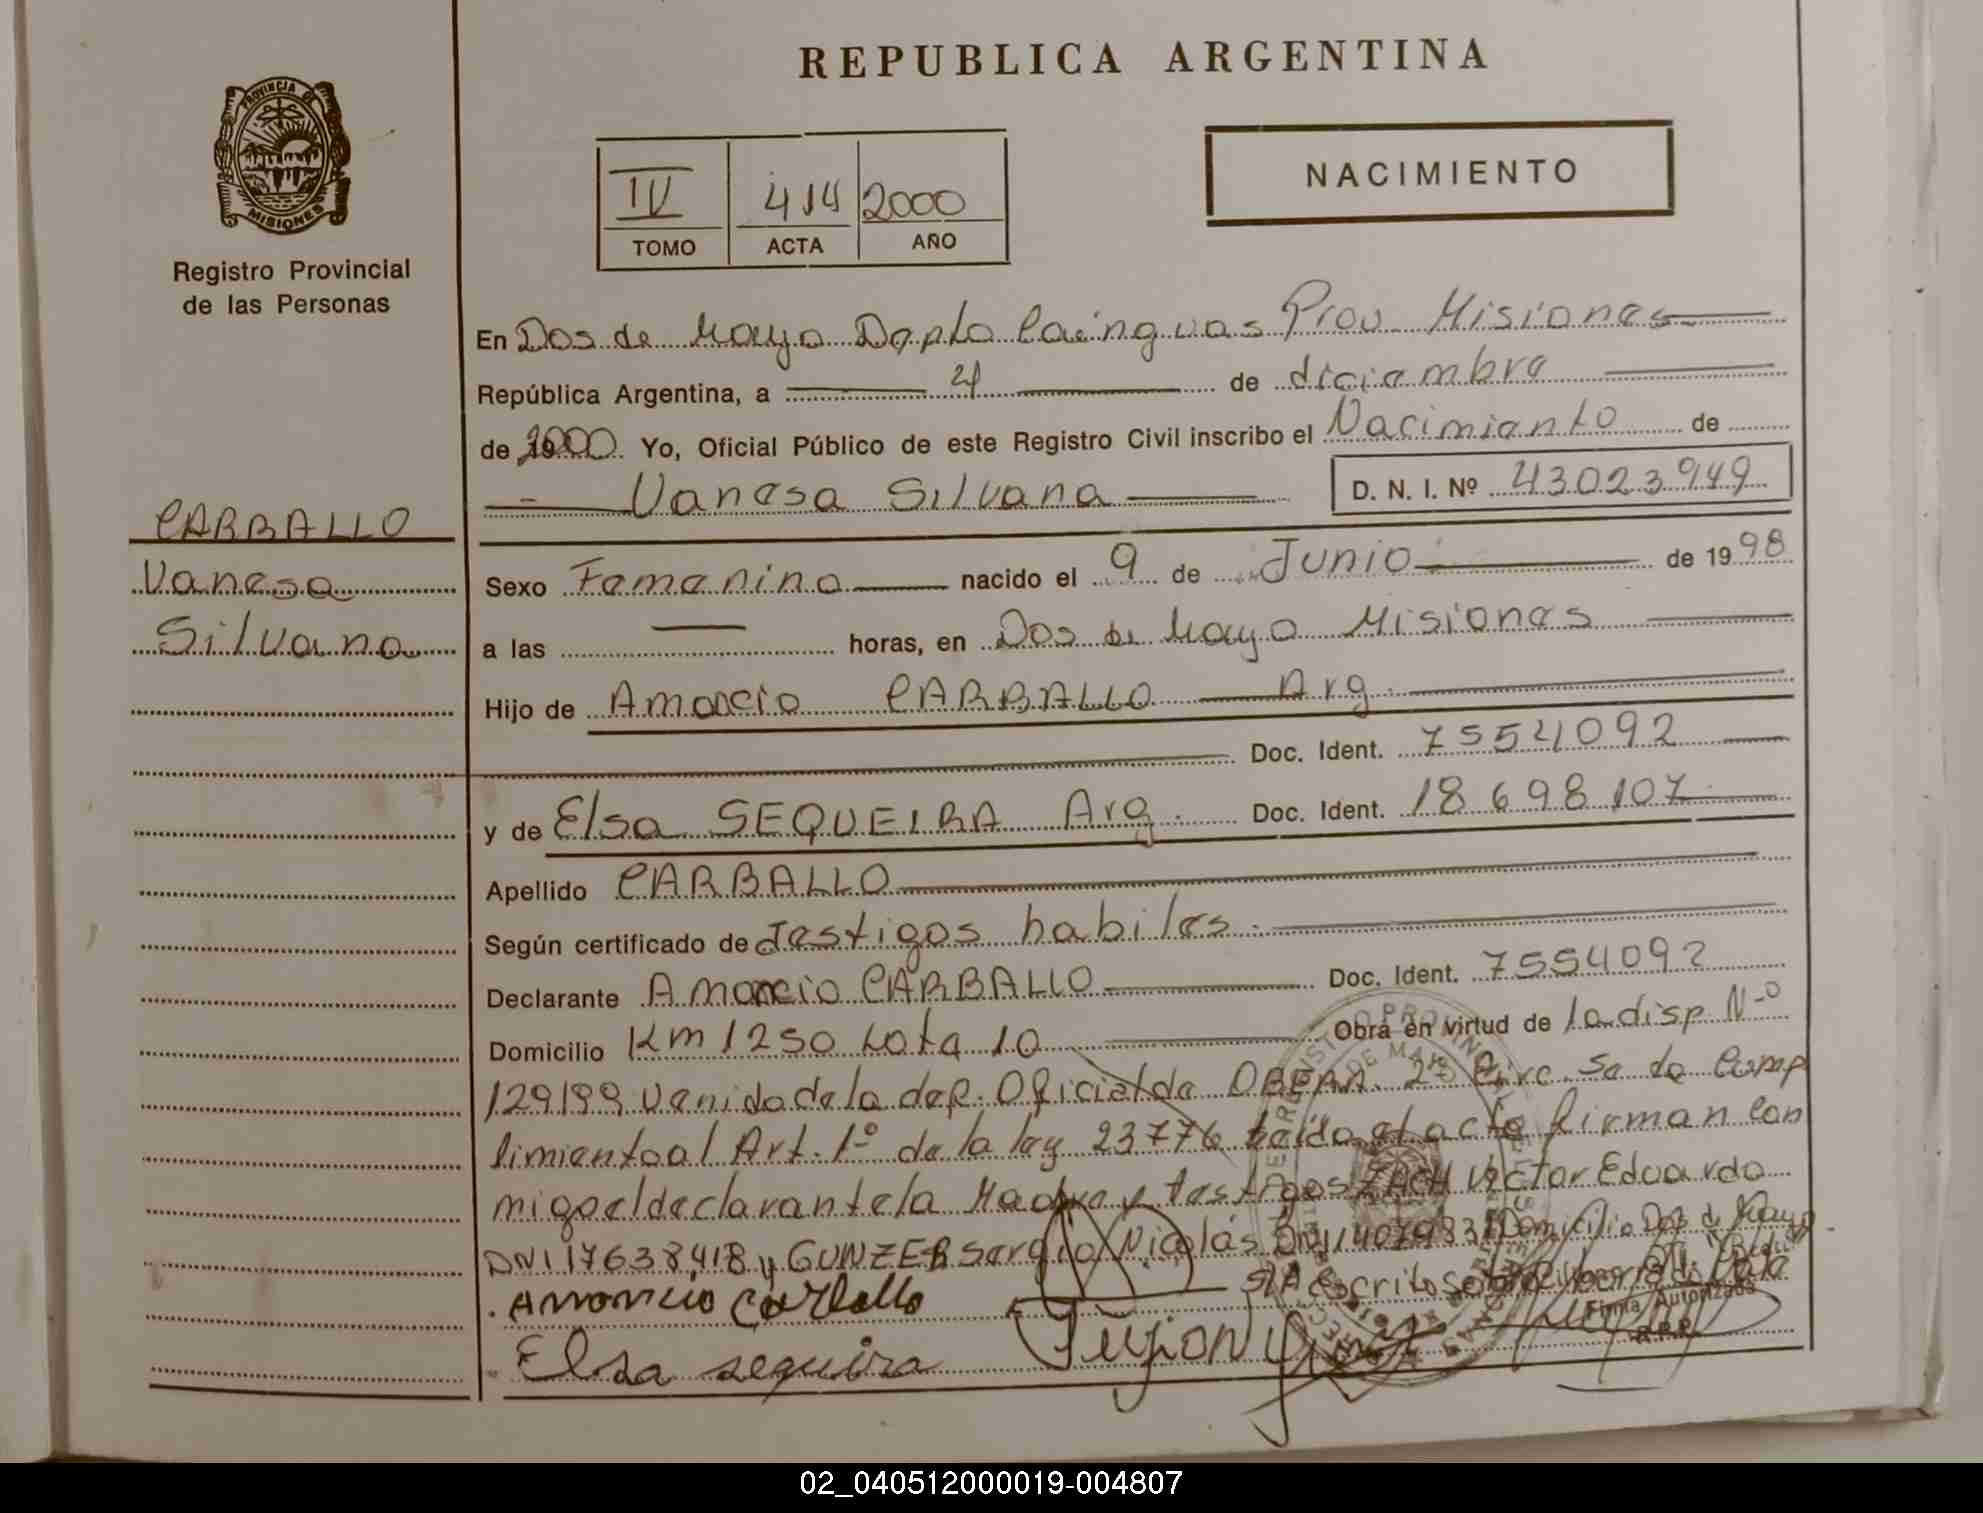 REPUBLICA ARGENTINA
PROVINCIA DE
MISIONES
Registro Provincial
de las Personas
NACIMIENTO
IV 414 2000
TOMO ACTA AÑO
En Dos de Mayo Depto Cainguas Prov Misiones
República Argentina, a 4 de diciembre
de 2000 Yo, Oficial Público de este Registro Civil inscribo el Nacimiento de
Vanesa Silvana D. N. I. Nº 43023949
CARBALLO
Vanesa
Silvana
Sexo Femenino nacido el 9 de Junio de 1998
a las horas, en Dos de Mayo Misiones
Hijo de Amancio CARBALLO Arg.
Doc. Ident. 7554092
y de Elsa SEQUEIRA Arg. Doc. Ident. 18698107
Apellido CARBALLO
Según certificado de Testigos habiles.
Declarante Amancio CARBALLO Doc. Ident. 7554092
Domicilio Km 1250 Lote 10 Obra en virtud de la disp Nº
129/99 Venida de la dep. Oficial de OBERA 2º Circ. Se da Cump
limiento al Art. 1º de la ley 23776 Leido el acta firman con
migo el declarante la Madre y testigos ZACH Victor Eduardo
DNI 17638418 y GUNZER Sergio Nicolás DNI 14079331 Domicilio Dos de Mayo
S/A escrito sobre
Amancio Carballo
Firma Autorizada
R.P.P.
Elsa sequira
02_040512000019-004807